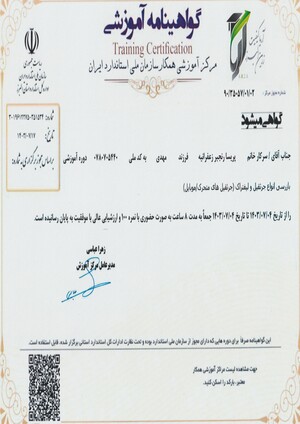 گواهینامه آموزشی
Training Certification
مرکز آموزشی همکار سازمان ملی استاندارد ایران
گواهی میشود
جناب آقای / سرکار خانم پریسا رنجبر زعفرانیه فرزند مهدی به کد ملی دوره آموزشی
بازرسی انواع جرثقیل و لیفتراک (جرثقیل های متحرک/موبایل)
از تاریخ ۱۴۰۳/۰۷/۰۴ تا ۱۴۰۳/۰۷/۰۴ جمعاً به مدت ۸ ساعت به صورت حضوری با نمره ۱۰۰ و ارزشیابی عالی با موفقیت به پایان رسانده است.
زهرا عباسی
مدیرعامل مرکز آموزش
این گواهینامه صرفاً برای دوره هایی که دارای مجوز از سازمان ملی استاندارد بوده و تحت نظارت ادارات کل استاندارد استانی برگزار شده، قابل استفاده است.
جهت مشاهده لیست مراکز آموزشی همکار
معتبر، بارکد را اسکن کنید.